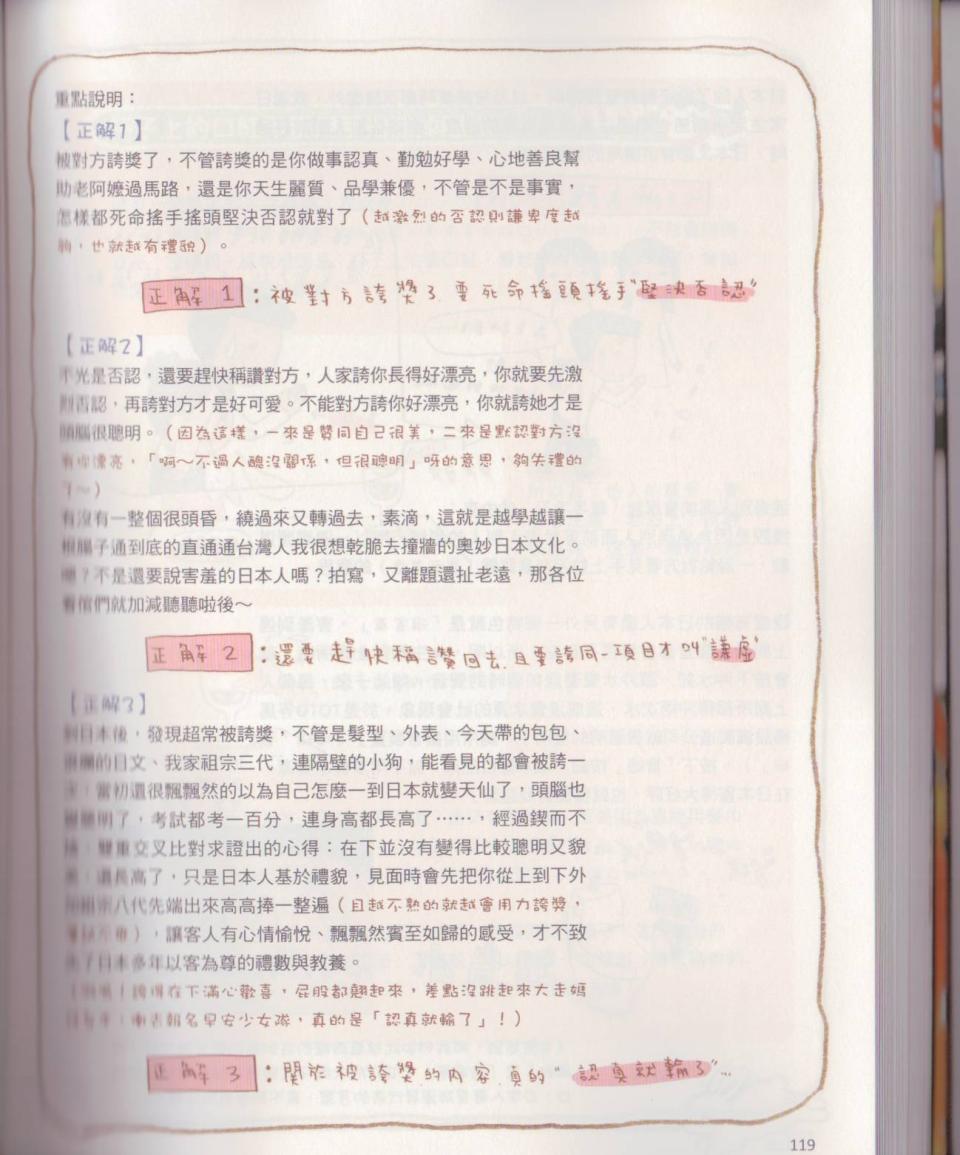 重點說明：
【正解1】
被對方誇獎了，不管誇獎的是你做事認真、勤勉好學、心地善良幫
助老阿嬤過馬路，還是你天生麗質、品學兼優，不管是不是事實，
怎樣都死命搖手搖頭堅決否認就對了（越激烈的否認則謙卑度越
夠，也就越有禮貌）。
正解1：被對方誇獎了 要死命搖頭搖手"堅決否認"
【正解2】
不光是否認，還要趕快稱讚對方，人家誇你長得好漂亮，你就要先激
烈否認，再誇對方才是好可愛。不能對方誇你好漂亮，你就誇她才是
頭腦很聰明。（因為這樣，一來是贊同自己很美，二來是默認對方沒
有你漂亮，「啊～不過人醜沒關係，但很聰明」呀的意思，夠失禮的
了～）
有沒有一整個很頭昏，繞過來又轉過去，素滴，這就是越學越讓一
根腸子通到底的直通通台灣人我很想乾脆去撞牆的奧妙日本文化。
嗯？不是還要說害羞的日本人嗎？拍寫，又離題還扯老遠，那各位
看倌們就加減聽聽啦後～
正解2：還要趕快稱讚回去 且要誇同一項目才叫"謙虛"
【正解3】
到日本後，發現超常被誇獎，不管是髮型、外表、今天帶的包包、
的日文、我家祖宗三代，連隔壁的小狗，能看見的都會被誇一
次，當初還很飄飄然的以為自己怎麼一到日本就變天仙了，頭腦也
變聰明了，考試都考一百分，連身高都長高了……，經過鍥而不
捨，雙重交叉比對求證出的心得：在下並沒有變得比較聰明又貌
美，還長高了，只是日本人基於禮貌，見面時會先把你從上到下外
加祖宗八代先端出來高高捧一整遍（且越不熟的就越會用力誇獎，
），讓客人有心情愉悅、飄飄然賓至如歸的感受，才不致
失了日本多年以客為尊的禮數與教養。
誇得在下滿心歡喜，屁股都翹起來，差點沒跳起來大走媽
衝去報名早安少女隊，真的是「認真就輸了」！）
正解3：關於被誇獎的內容 真的"認真就輸了"...
119